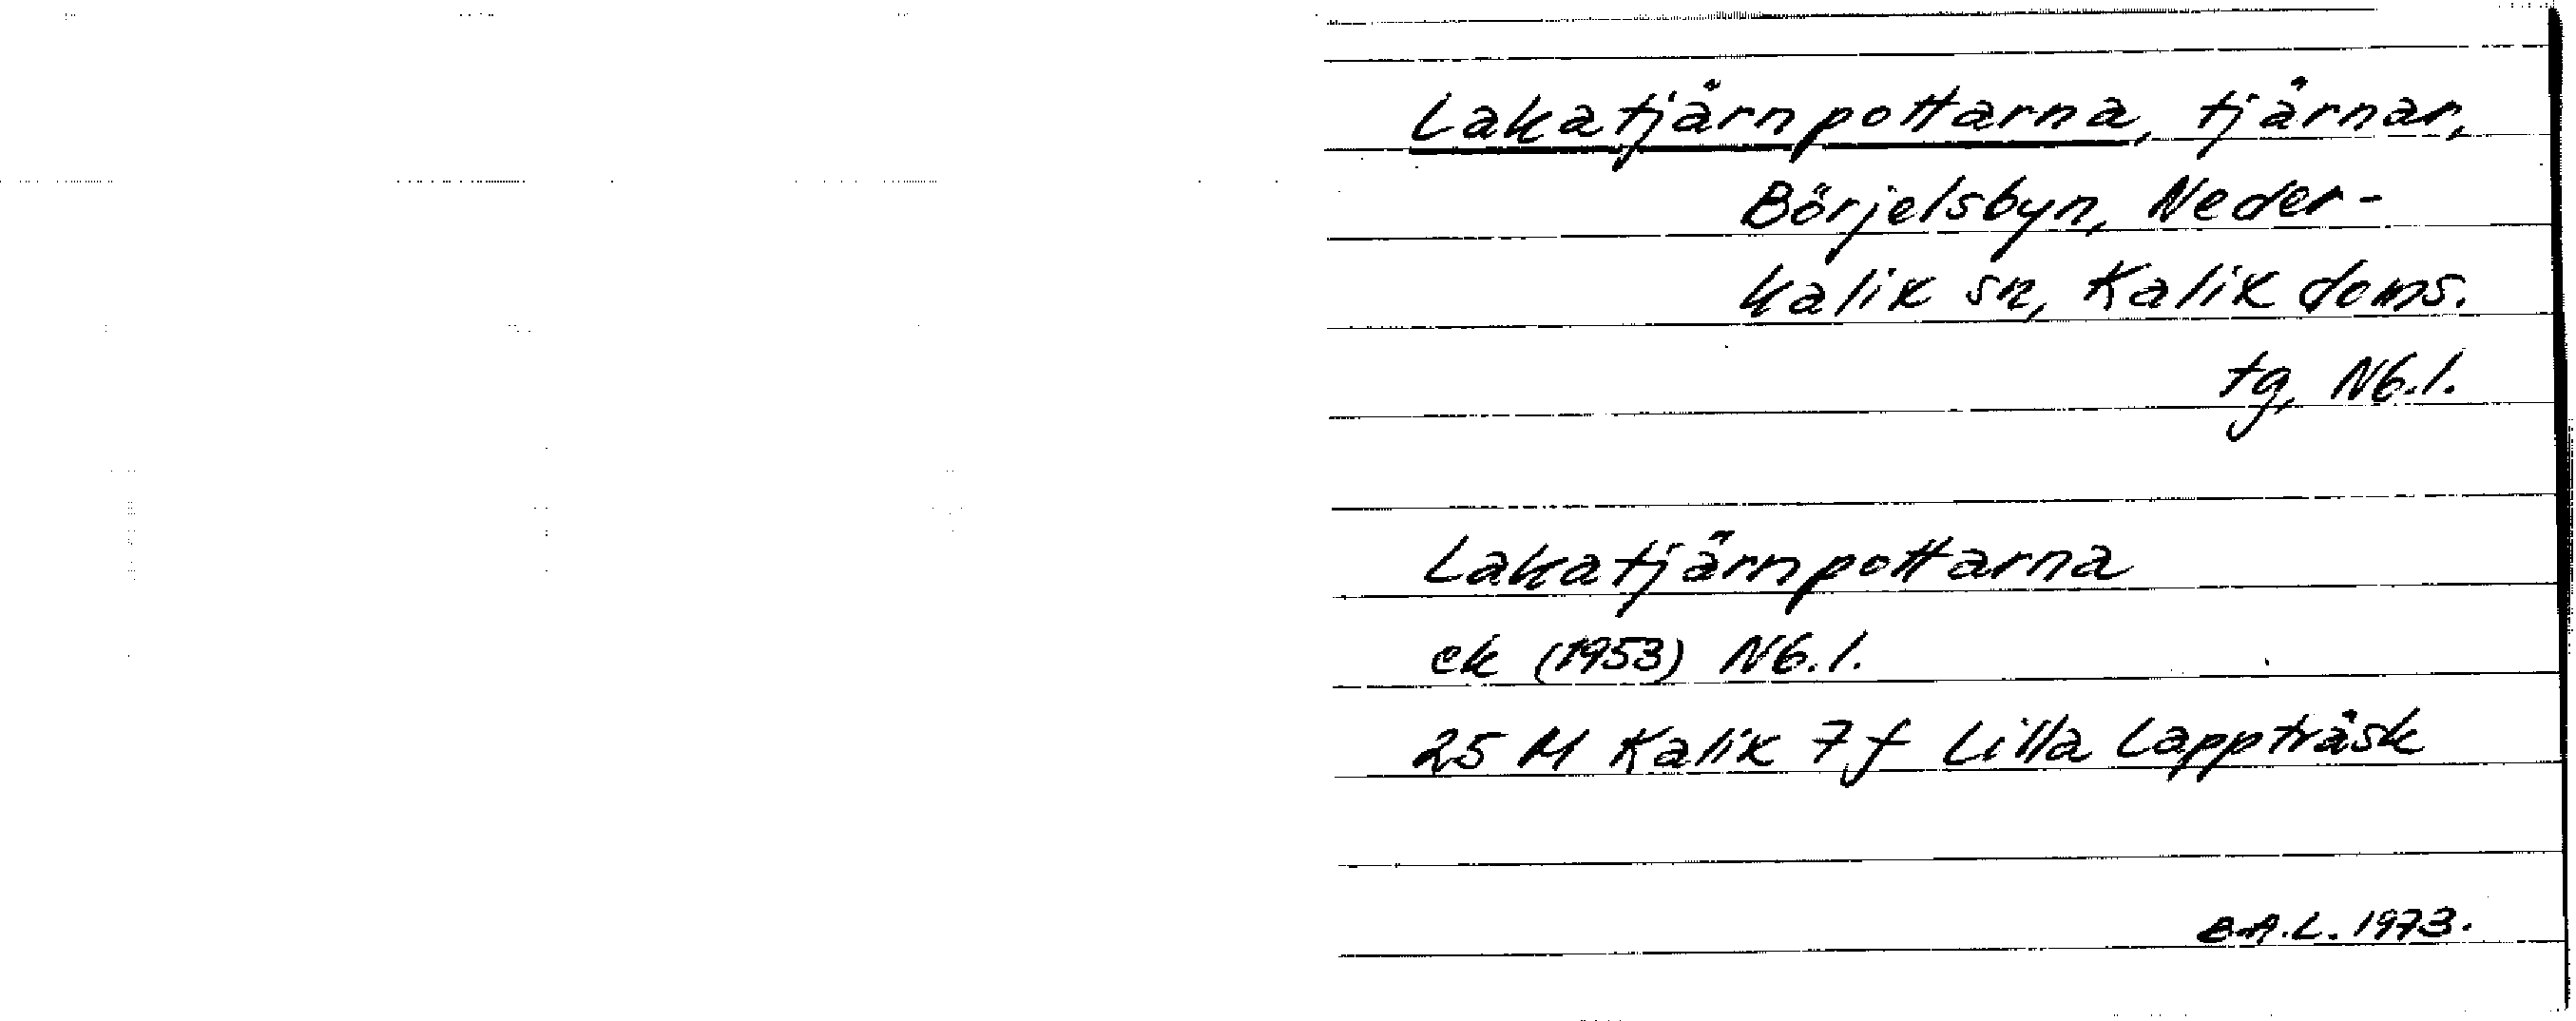 Lakatjärnpottarna, tjärnar,
Börjelsbyn, Neder-
kalix sn, Kalix doms.
tg, Nb.l.
Lakatjärnpottarna
ek (1953) Nb.l.
25 M Kalix 7 f Lilla Lappträsk
B.A.L. 1973.